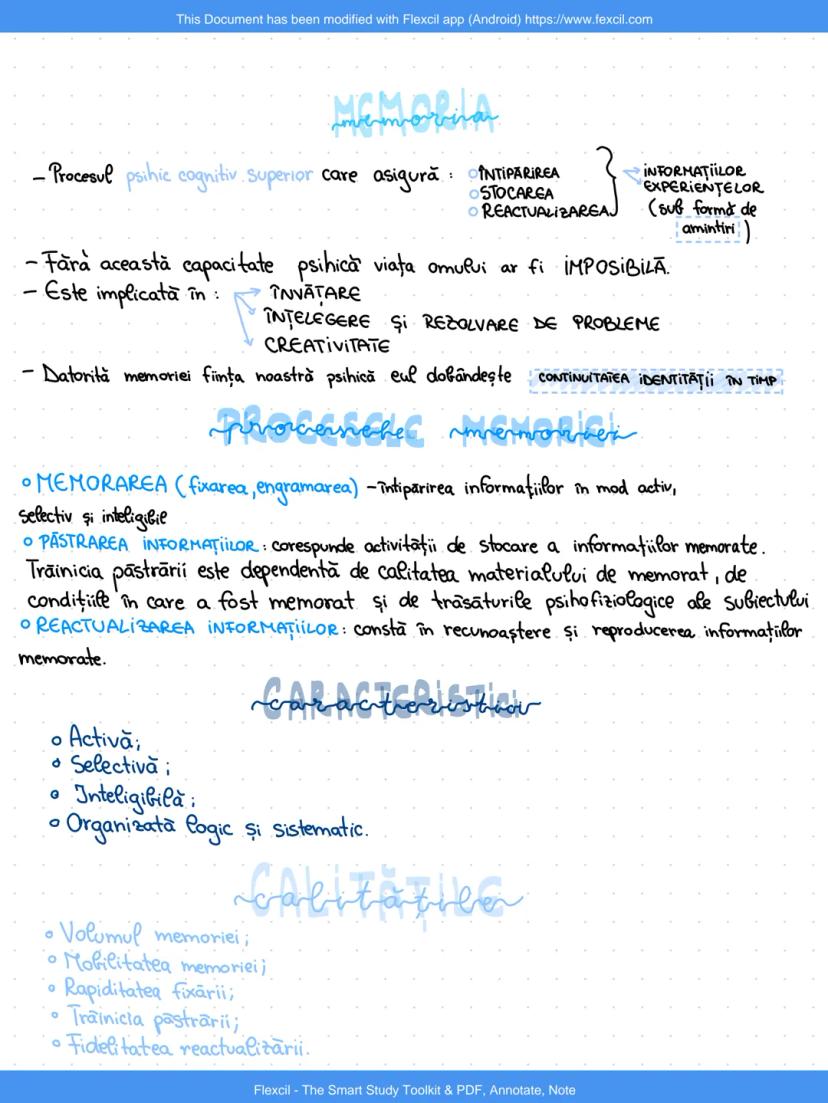 This Document has been modified with Flexcil app (Android) https://www.fexcil.com
MEMORIA
memoria
– Procesul psihic cognitiv superior care asigură : ○ ÎNTIPĂRIREA
○ STOCAREA
○ REACTUALIZAREA
INFORMAȚIILOR
EXPERIENȚELOR
(sub formă de
amintiri)
– Fără această capacitate psihică viața omului ar fi IMPOSIBILĂ.
– Este implicată în : ÎNVĂȚARE
ÎNȚELEGERE și REZOLVARE DE PROBLEME
CREATIVITATE
– Datorită memoriei ființa noastră psihică eul dobândește CONTINUITATEA IDENTITĂȚII ÎN TIMP
PROCESELE MEMORIEI
procesele memoriei
○ MEMORAREA (fixarea, engramarea) – întipărirea informațiilor în mod activ,
selectiv și inteligibil
○ PĂSTRAREA INFORMAȚIILOR : corespunde activității de stocare a informațiilor memorate.
Trăinicia păstrării este dependentă de calitatea materialului de memorat, de
condițiile în care a fost memorat și de trăsăturile psihofiziologice ale subiectului
○ REACTUALIZAREA INFORMAȚIILOR : constă în recunoaștere și reproducerea informațiilor
memorate.
CARACTERISTICI
caracteristici
○ Activă;
○ Selectivă;
○ Inteligibilă;
○ Organizată logic și sistematic.
CALITĂȚILE
calitățile
○ Volumul memoriei;
○ Mobilitatea memoriei;
○ Rapiditatea fixării;
○ Trăinicia păstrării;
○ Fidelitatea reactualizării.
Flexcil - The Smart Study Toolkit & PDF, Annotate, Note